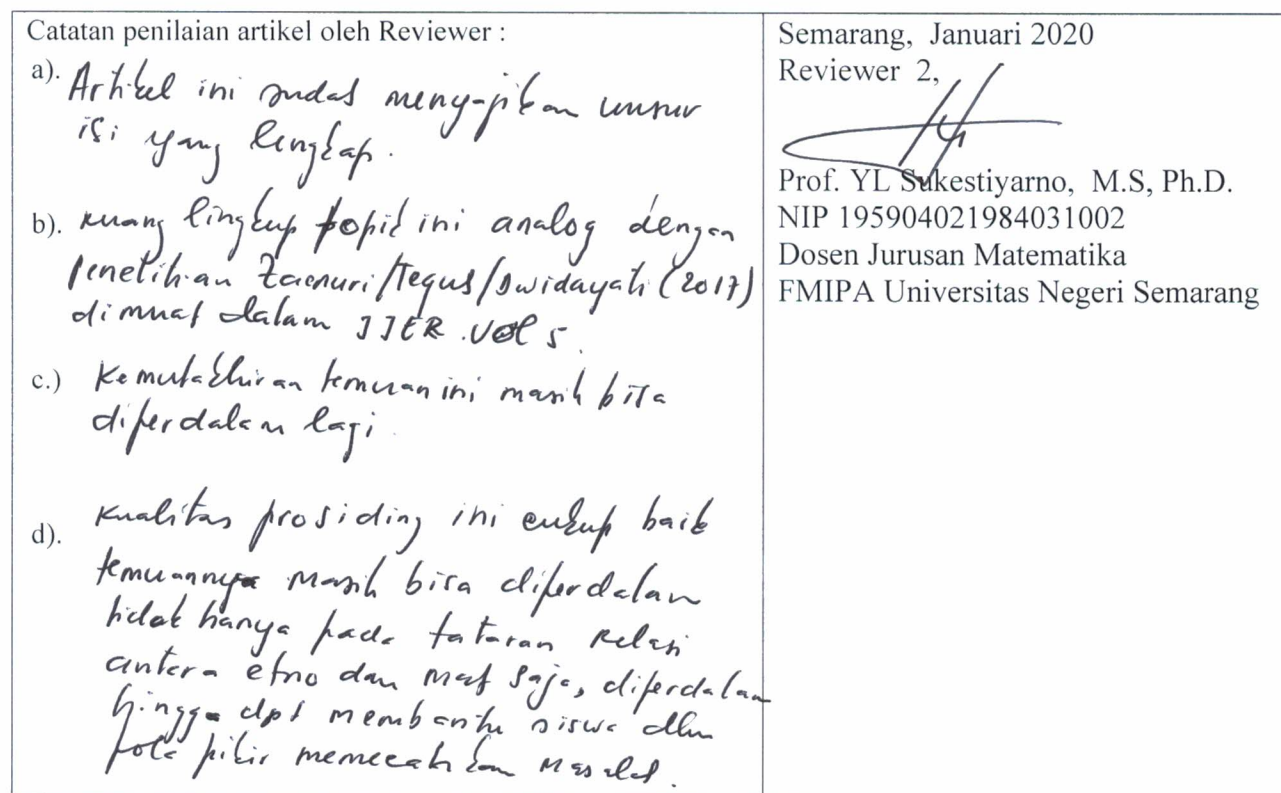 Catatan penilaian artikel oleh Reviewer :
a). Artikel ini sudah menyajikan unsur
isi yang lengkap.
b). Ruang lingkup topik ini analog dengan
penelitian Zaenuri/Teguh/Dwidayati (2017)
dimuat dalam IJER. Vol 5.
c.) Kemutakhiran temuan ini masih bisa
diperdalam lagi.
d). Kualitas prosiding ini cukup baik
temuannya masih bisa diperdalam
tidak hanya pada tataran relasi
antara etno dan mat saja, diperdalam
hingga dpt membantu siswa dlm
pola pikir memecahkan masalah.
Semarang, Januari 2020
Reviewer 2,
Prof. YL Sukestiyarno, M.S, Ph.D.
NIP 195904021984031002
Dosen Jurusan Matematika
FMIPA Universitas Negeri Semarang